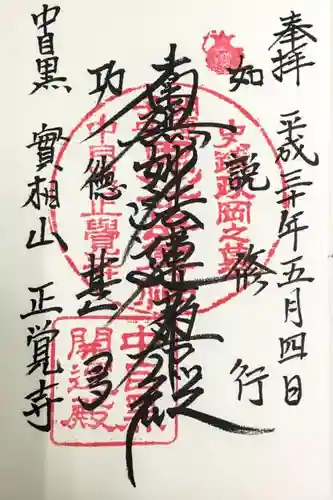 奉拝 平成三十年五月四日
如説修行
南無妙法蓮華経
功徳甚多
中目黒 實相山 正覚寺
史蹟政岡之墓
中目黒
開運殿